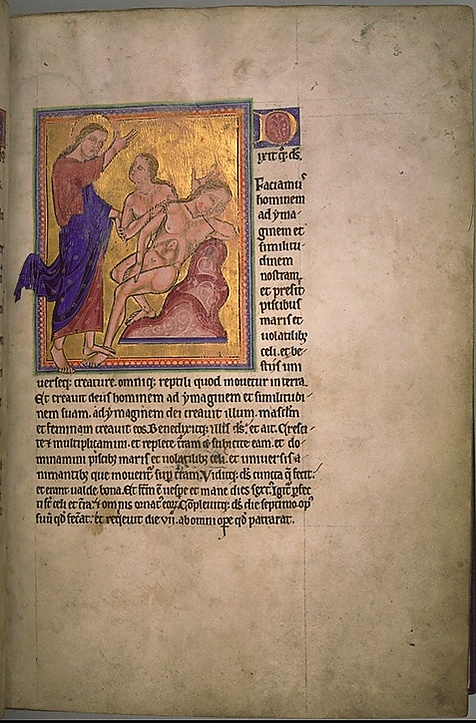 D
ixit q; ds.
Faciamus
hominem
ad yma-
ginem et
similitu
dinem
nostram.
et presit
piscibus
maris et
volatilib;
celi. et be-
stiis uni
uerseq; creature. omniq; reptili quod mouetur in terra.
Et creauit deus hominem ad ymaginem et similitudi-
nem suam. ad ymaginem dei creauit illum. masclm
et feminam creauit eos. Benedixitq; illis ds. et ait. Cresci-
te & multiplicamini. et replete terram & subicite eam. et do-
minamini piscib; maris et uolatilib; celi. et uniuersis a-
nimantib; que mouentur sup terram. Viditq; ds cuncta q fecit.
et erant ualde bona. Et fcm e uespe et mane dies sext. Igit pfec
ti st celi et tra & omnis ornat eor. Copleuitq; ds die septimo op
suu qd fecat. et requieuit die vii. ab omni ope qd patrarat.